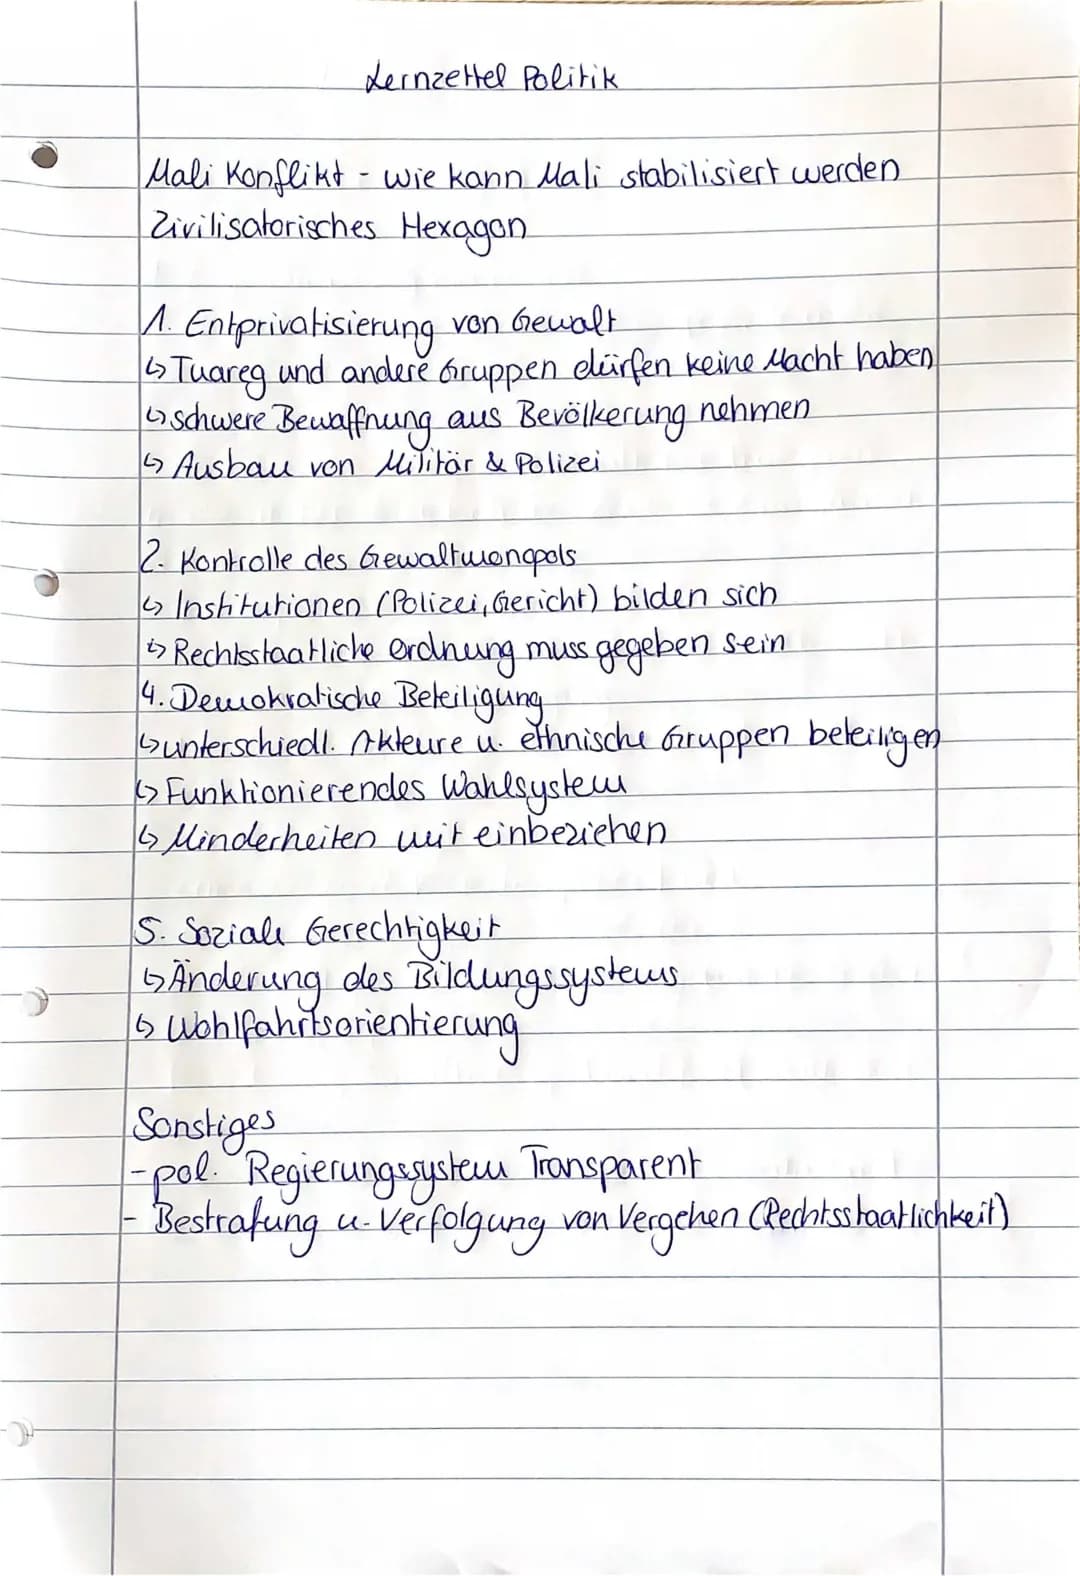 Lernzettel Politik
Mali Konflikt - wie kann Mali stabilisiert werden
Zivilisatorisches Hexagon
1. Entprivatisierung von Gewalt
↳ Tuareg und andere Gruppen dürfen keine Macht haben
↳ schwere Bewaffnung aus Bevölkerung nehmen
↳ Ausbau von Militär & Polizei
2. Kontrolle des Gewaltmonopols
↳ Institutionen (Polizei, Gericht) bilden sich
↳ Rechtsstaatliche Ordnung muss gegeben sein
4. Demokratische Beteiligung
↳ unterschiedl. Akteure u. ethnische Gruppen beteiligen
↳ Funktionierendes Wahlsystem
↳ Minderheiten mit einbeziehen
5. Soziale Gerechtigkeit
↳ Änderung des Bildungssystems
↳ Wohlfahrtsorientierung
Sonstiges
- pol. Regierungssystem Transparent
- Bestrafung u. Verfolgung von Vergehen (Rechtsstaatlichkeit)